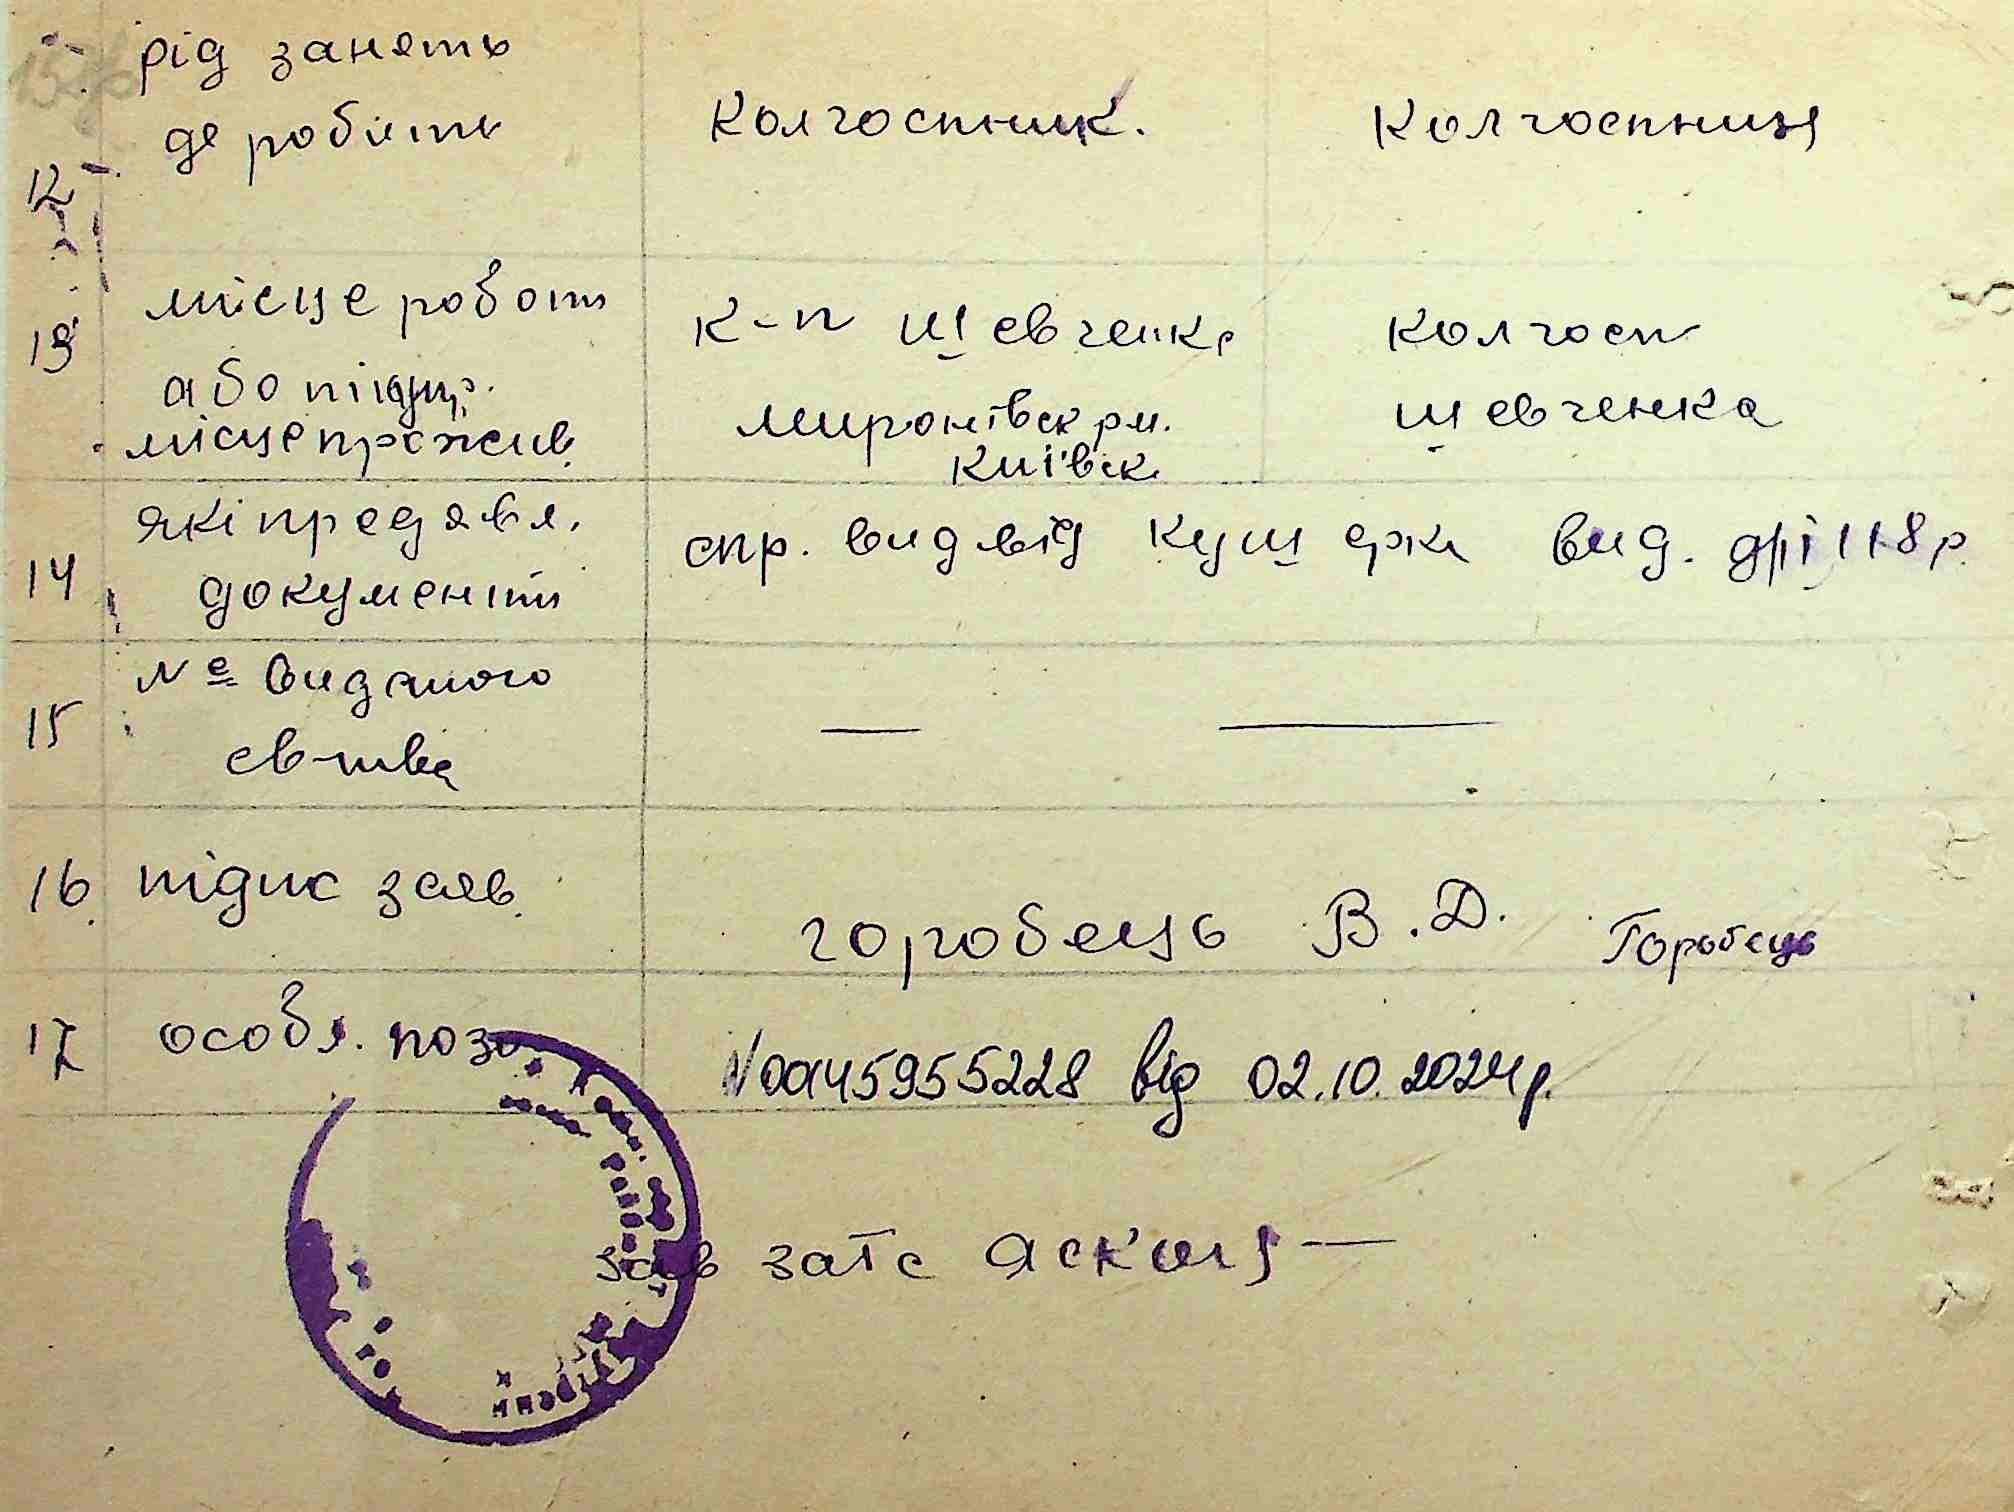 рід занять
де робить
Колгоспник.
Колгоспниця
12
місце роботи
або підпр.
місцепрожив.
13
к-п Шевченка
Миронівск рн.
Київск.
колгосп
Шевченка
14
які предявл.
документи
спр. вид від
вид.
15
№ виданого
св-тва
— —
16.
підпис заяв.
горобець В.Д. Горобець
17
особл. позн.
N00145955228 від 02.10.2024р.
зав загс